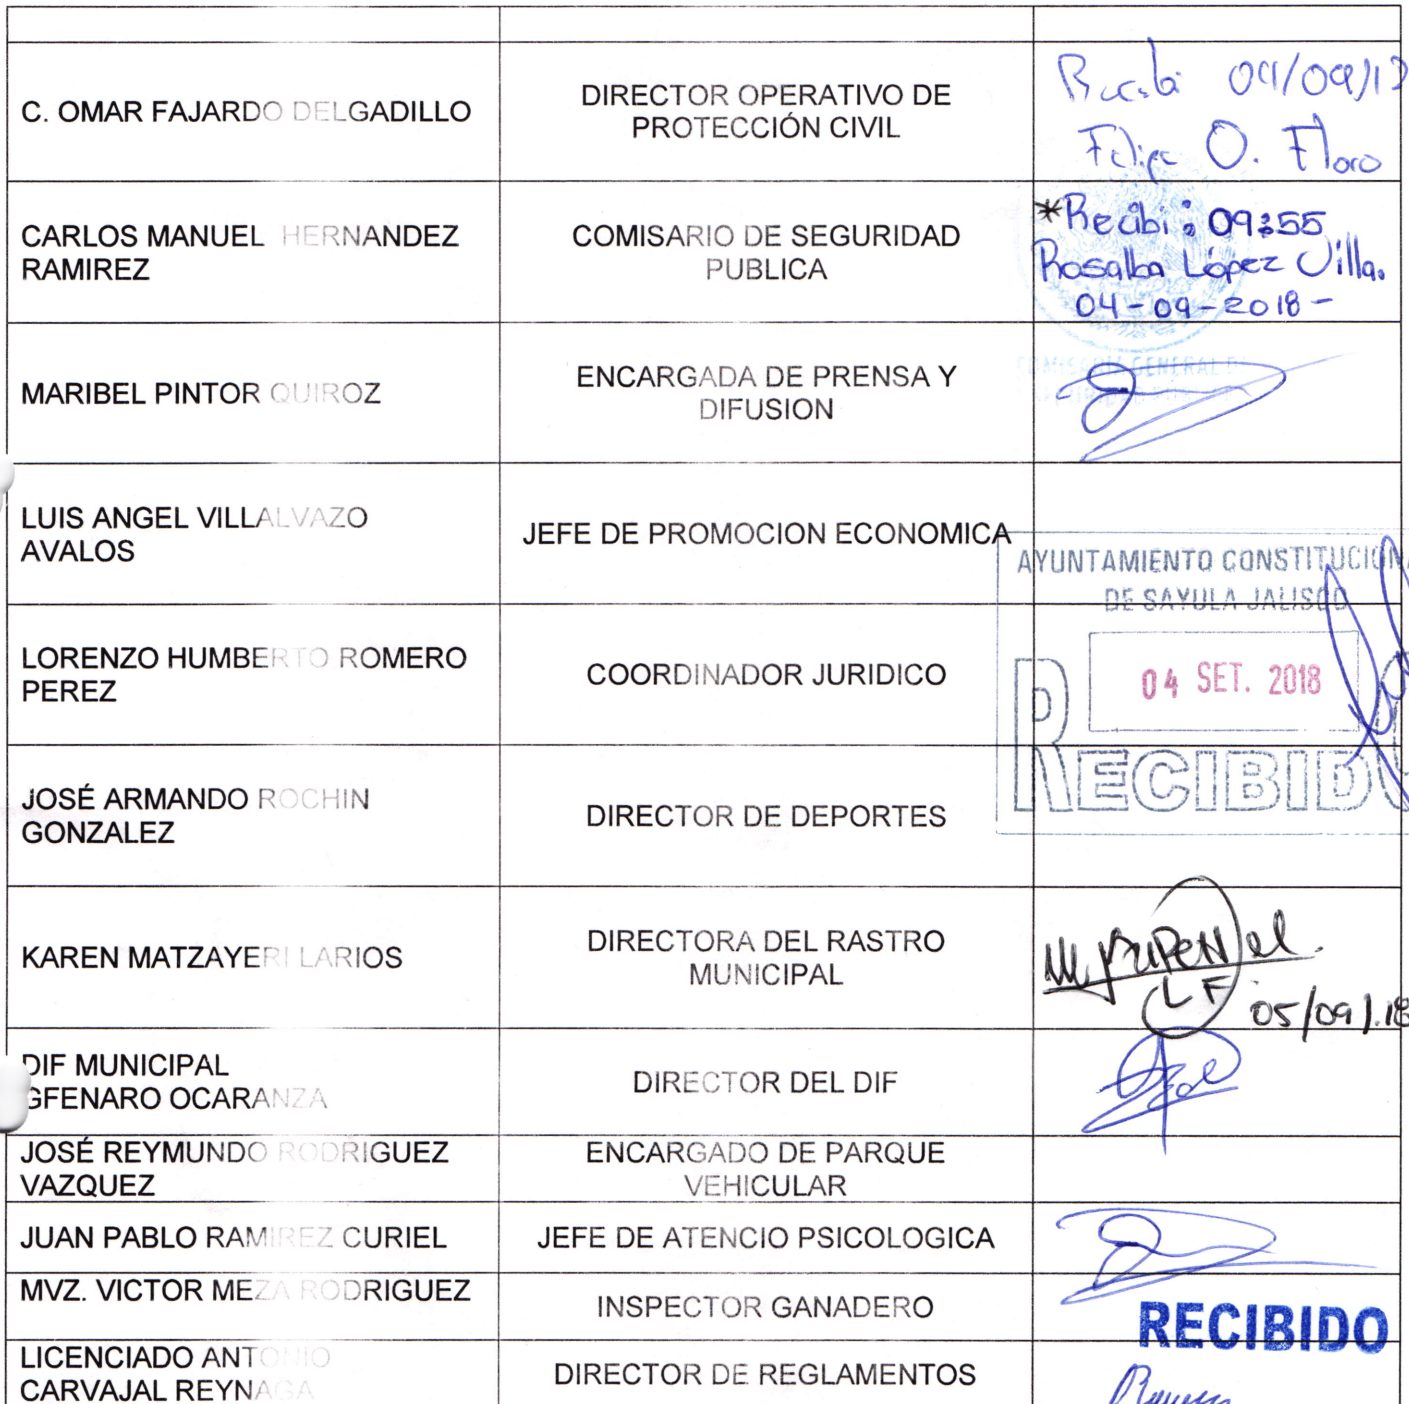 C. OMAR FAJARDO DELGADILLO
DIRECTOR OPERATIVO DE
PROTECCIÓN CIVIL
Recibi 04/09/18
Felipe O. Floro
CARLOS MANUEL HERNANDEZ
RAMIREZ
COMISARIO DE SEGURIDAD
PUBLICA
*Recibi: 09:55
Rosalba López Villa.
04-09-2018-
MARIBEL PINTOR QUIROZ
ENCARGADA DE PRENSA Y
DIFUSION
COMISARIA GENERAL D
LUIS ANGEL VILLALVAZO
AVALOS
JEFE DE PROMOCION ECONOMICA
AYUNTAMIENTO CONSTITUCIONA
DE SAYULA JALISCO
LORENZO HUMBERTO ROMERO
PEREZ
COORDINADOR JURIDICO
04 SET. 2018
RECIBIDO
JOSÉ ARMANDO ROCHIN
GONZALEZ
DIRECTOR DE DEPORTES
KAREN MATZAYERI LARIOS
DIRECTORA DEL RASTRO
MUNICIPAL
LF
05/09/.18
DIF MUNICIPAL
GFENARO OCARANZA
DIRECTOR DEL DIF
JOSÉ REYMUNDO RODRIGUEZ
VAZQUEZ
ENCARGADO DE PARQUE
VEHICULAR
JUAN PABLO RAMIREZ CURIEL
JEFE DE ATENCIO PSICOLOGICA
MVZ. VICTOR MEZA RODRIGUEZ
INSPECTOR GANADERO
RECIBIDO
LICENCIADO ANTONIO
CARVAJAL REYNAGA
DIRECTOR DE REGLAMENTOS